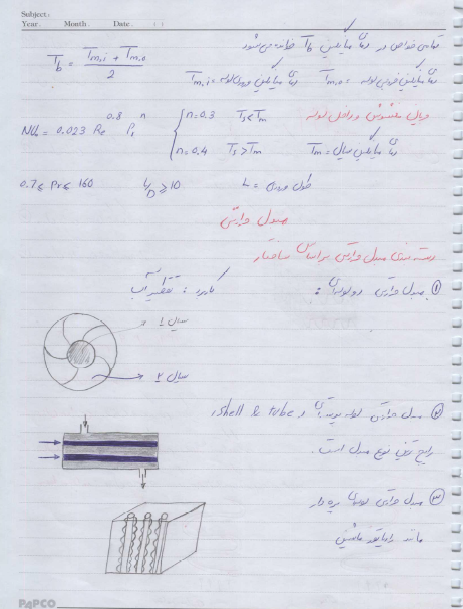 Subject:
Year. Month. Date. ( )
تمامی خواص در دمای میانگین Tb خوانده می‌شود
Tb = (Tm,i + Tm,o) / 2
Tm,o = دمای میانگین خروجی لوله Tm,i = دمای میانگین ورودی لوله
جریان مغشوش داخل لوله
Nu = 0.023 Re^0.8 Pr^n
n=0.3 Ts<Tm
n=0.4 Ts>Tm
Tm = دمای میانگین سیال
0.7 ≤ Pr ≤ 160 L/D ≥ 10 L = طول
مبدل حرارتی
دسته بندی مبدل حرارتی براساس ساختار
① مبدل حرارتی دو لوله‌ای : کاربرد : تقطیر آب
سیال ۱
سیال ۲
② مبدل حرارتی لوله پوسته‌ای و shell & tube
رایج ترین نوع مبدل است.
③ مبدل حرارتی لوله‌ای پره دار
مانند رادیاتور ماشین
PAPCO